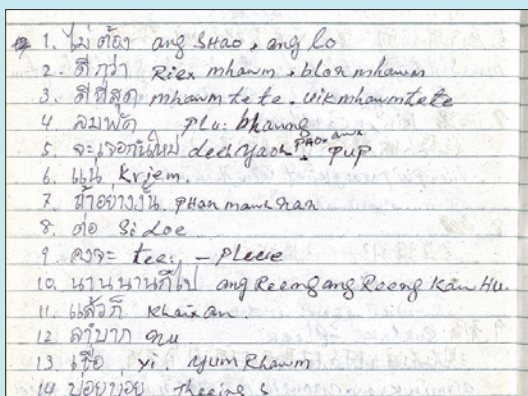 1. ไม่ต้อง ang SHao, ang lo
2. ดีกว่า Riex mhawm, blon mhawm
3. ดีที่สุด mhawm te te. vik mhawm te te
4. ลมพัด PLu: bhaung
5. จะเจอกันใหม่ deeh yaoh PUP
6. แน่ Krjem.
7. ถ้าอย่างงั้น PHan mawh nan
8. ต่อ Si doe
9. คงจะ teey – Pleue
10. นานนานทีไป ang Reeng ang Reeng Kau HU.
11. แล้วก็ Khaix an
12. ลำบาก
13. เชื่อ yi. yum Khawm
14. บ่อยบ่อย Theeing